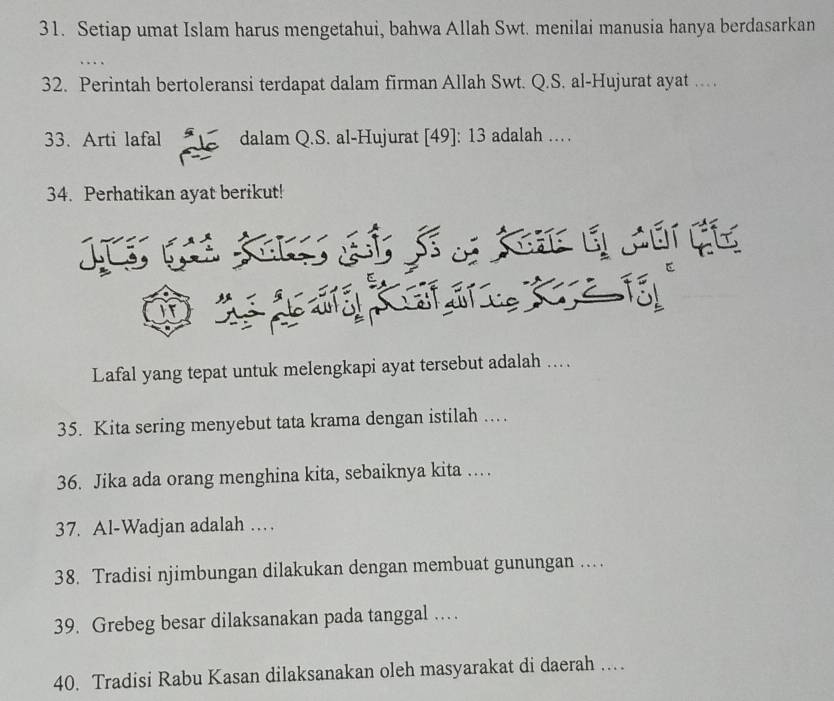 31. Setiap umat Islam harus mengetahui, bahwa Allah Swt. menilai manusia hanya berdasarkan
....
32. Perintah bertoleransi terdapat dalam firman Allah Swt. Q.S. al-Hujurat ayat ....
33. Arti lafal عَلِيمٌ dalam Q.S. al-Hujurat [49]: 13 adalah ....
34. Perhatikan ayat berikut!
يَٰٓأَيُّهَا ٱلنَّاسُ إِنَّا خَلَقْنَٰكُم مِّن ذَكَرٍ وَأُنثَىٰ وَجَعَلْنَٰكُمْ شُعُوبًا وَقَبَآئِلَ
إِنَّ أَكْرَمَكُمْ عِندَ ٱللَّهِ أَتْقَىٰكُمْ ۚ إِنَّ ٱللَّهَ عَلِيمٌ خَبِيرٌ ١٣
Lafal yang tepat untuk melengkapi ayat tersebut adalah ....
35. Kita sering menyebut tata krama dengan istilah ....
36. Jika ada orang menghina kita, sebaiknya kita ....
37. Al-Wadjan adalah ....
38. Tradisi njimbungan dilakukan dengan membuat gunungan ....
39. Grebeg besar dilaksanakan pada tanggal ....
40. Tradisi Rabu Kasan dilaksanakan oleh masyarakat di daerah ....